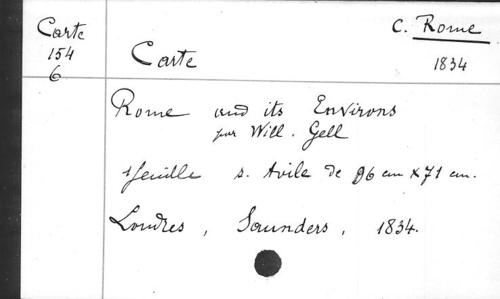 Carte
154
6
C. Rome
Carte
1834
Rome and its Environs
par Will. Gell
1 feuille s. toile de 96 cm x 71 cm.
Londres, Saunders, 1834.